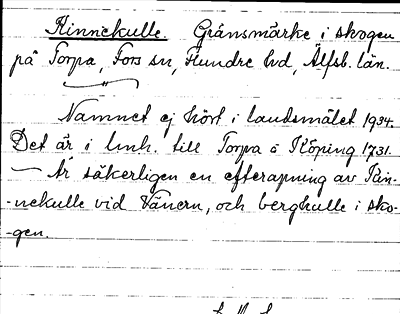 Kinnekulle. Gränsmärke i skogen
på Torpa, Fors sn, Flundre hd, Älfsb. län.
Namnet ej hört i landsmålet 1934.
Det är i lmh. till Torpa o Köping 1731.
— Är säkerligen en efterapning av Kin-
-nekulle vid Vänern, och bergkulle i sko-
-gen.